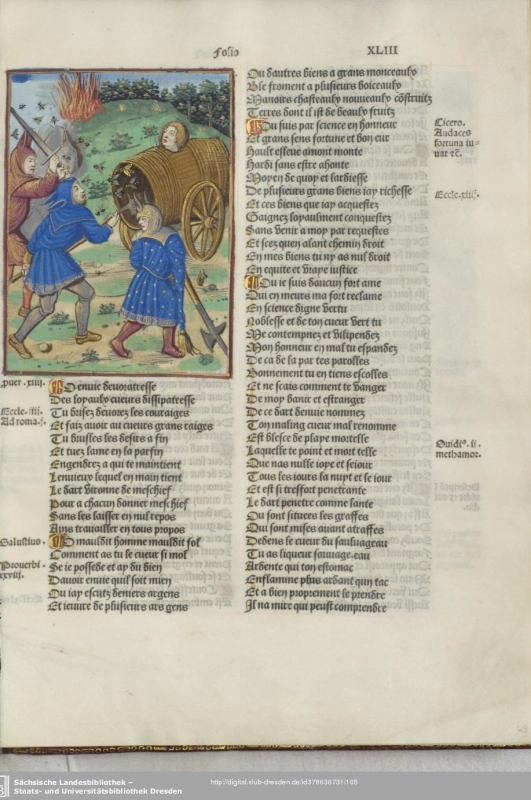 folio XLIII
Ou dautres biens a grans monceaulx
Ble froment a plusieurs boiceaulx
Manoirs chasteaulx nouueaulx cõstruitz
Terres dont il ist de beaulx fruitz
Ou suis par science en honneur
Et grans sens fortune et bon eur
Hault esleue amont monte
Hardi sans estre ahonte
Moyen de quoy et lardiesse
De plusieurs grans biens iay richesse
Et ces biens que iay acquestez
Gaignez loyaulment conquestez
Sans venir a moy par requestes
Et scez quen alant chemin droit
En mes biens tu ny as nul droit
En equite et vraye iustice
Ou ie suis daucun fort ame
Qui en meurs ma fort reclame
En science digne vertu
Noblesse et de ton cueur vert tu
Me contempnez et vilipendez
Mon honneur en mal tu espandez
De ca de la par tes parolles
Bonnement tu en tiens escolles
Et ne scais comment te vanger
De moy banir et estranger
De ce dart denuie nommez
Ton maling cueur mal renomme
Est blesce de playe mortelle
Laquelle te point et mort telle
Que nas nulle ioye et seiour
Tous les iours la nuyt et le iour
Et est si tresfort penetrante
Le dart penetre comme lante
Ou sont situees les graffes
Qui sont mises auant atraffes
Dedens le cueur du saulusageau
Tu as liqueur sauuage eau
Ardente qui ton estomac
Enflamme plus ardant qun tac
Et a bien proprement le prendre
Il na mire qui peust comprendre
Cicero.
Audaces
fortuna iu=
uat ⁊c.
Eccle.xiiii.
Ouidi⁹. ii.
methamor.
puer .xiiii.
Eccle .iii.
Ad roma.i.
Salustius.
Prouerbi.
xxviii.
O enuie deuoratresse
Des loyaulx cueurs dissipatresse
Tu brisez deuorez les couraiges
Et faiz auoir au cueurs grans raiges
Tu brusles les desirs a fin
Et tuez lame en la parfin
Engendrez a qui te maintient
Lenuieux lequel en main tient
Le dart vironne de meschief
Pour a chacun donner meschief
Sans les laisser en nul repos
Ains trauailler en tous propos
O mauldit homme mauldit fol
Comment as tu le cueur si mol
Se ie possede et ay du bien
Dauoir enuie quil soit mien
Ou iay escutz deniers argens
Et iceulx de plusieurs ars gens
Sächsische Landesbibliothek –
Staats- und Universitätsbibliothek Dresden
http://digital.slub-dresden.de/id378636731/105